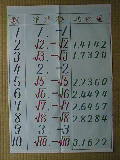 数 平方根 近似値
1 1 -1
2 √2 -√2 1.4142
3 √3 -√3 1.7320
4 2 -2
5 √5 -√5 2.2360
6 √6 -√6 2.4494
7 √7 -√7 2.6457
8 √8 -√8 2.8284
9 3 -3
10 √10 -√10 3.1622